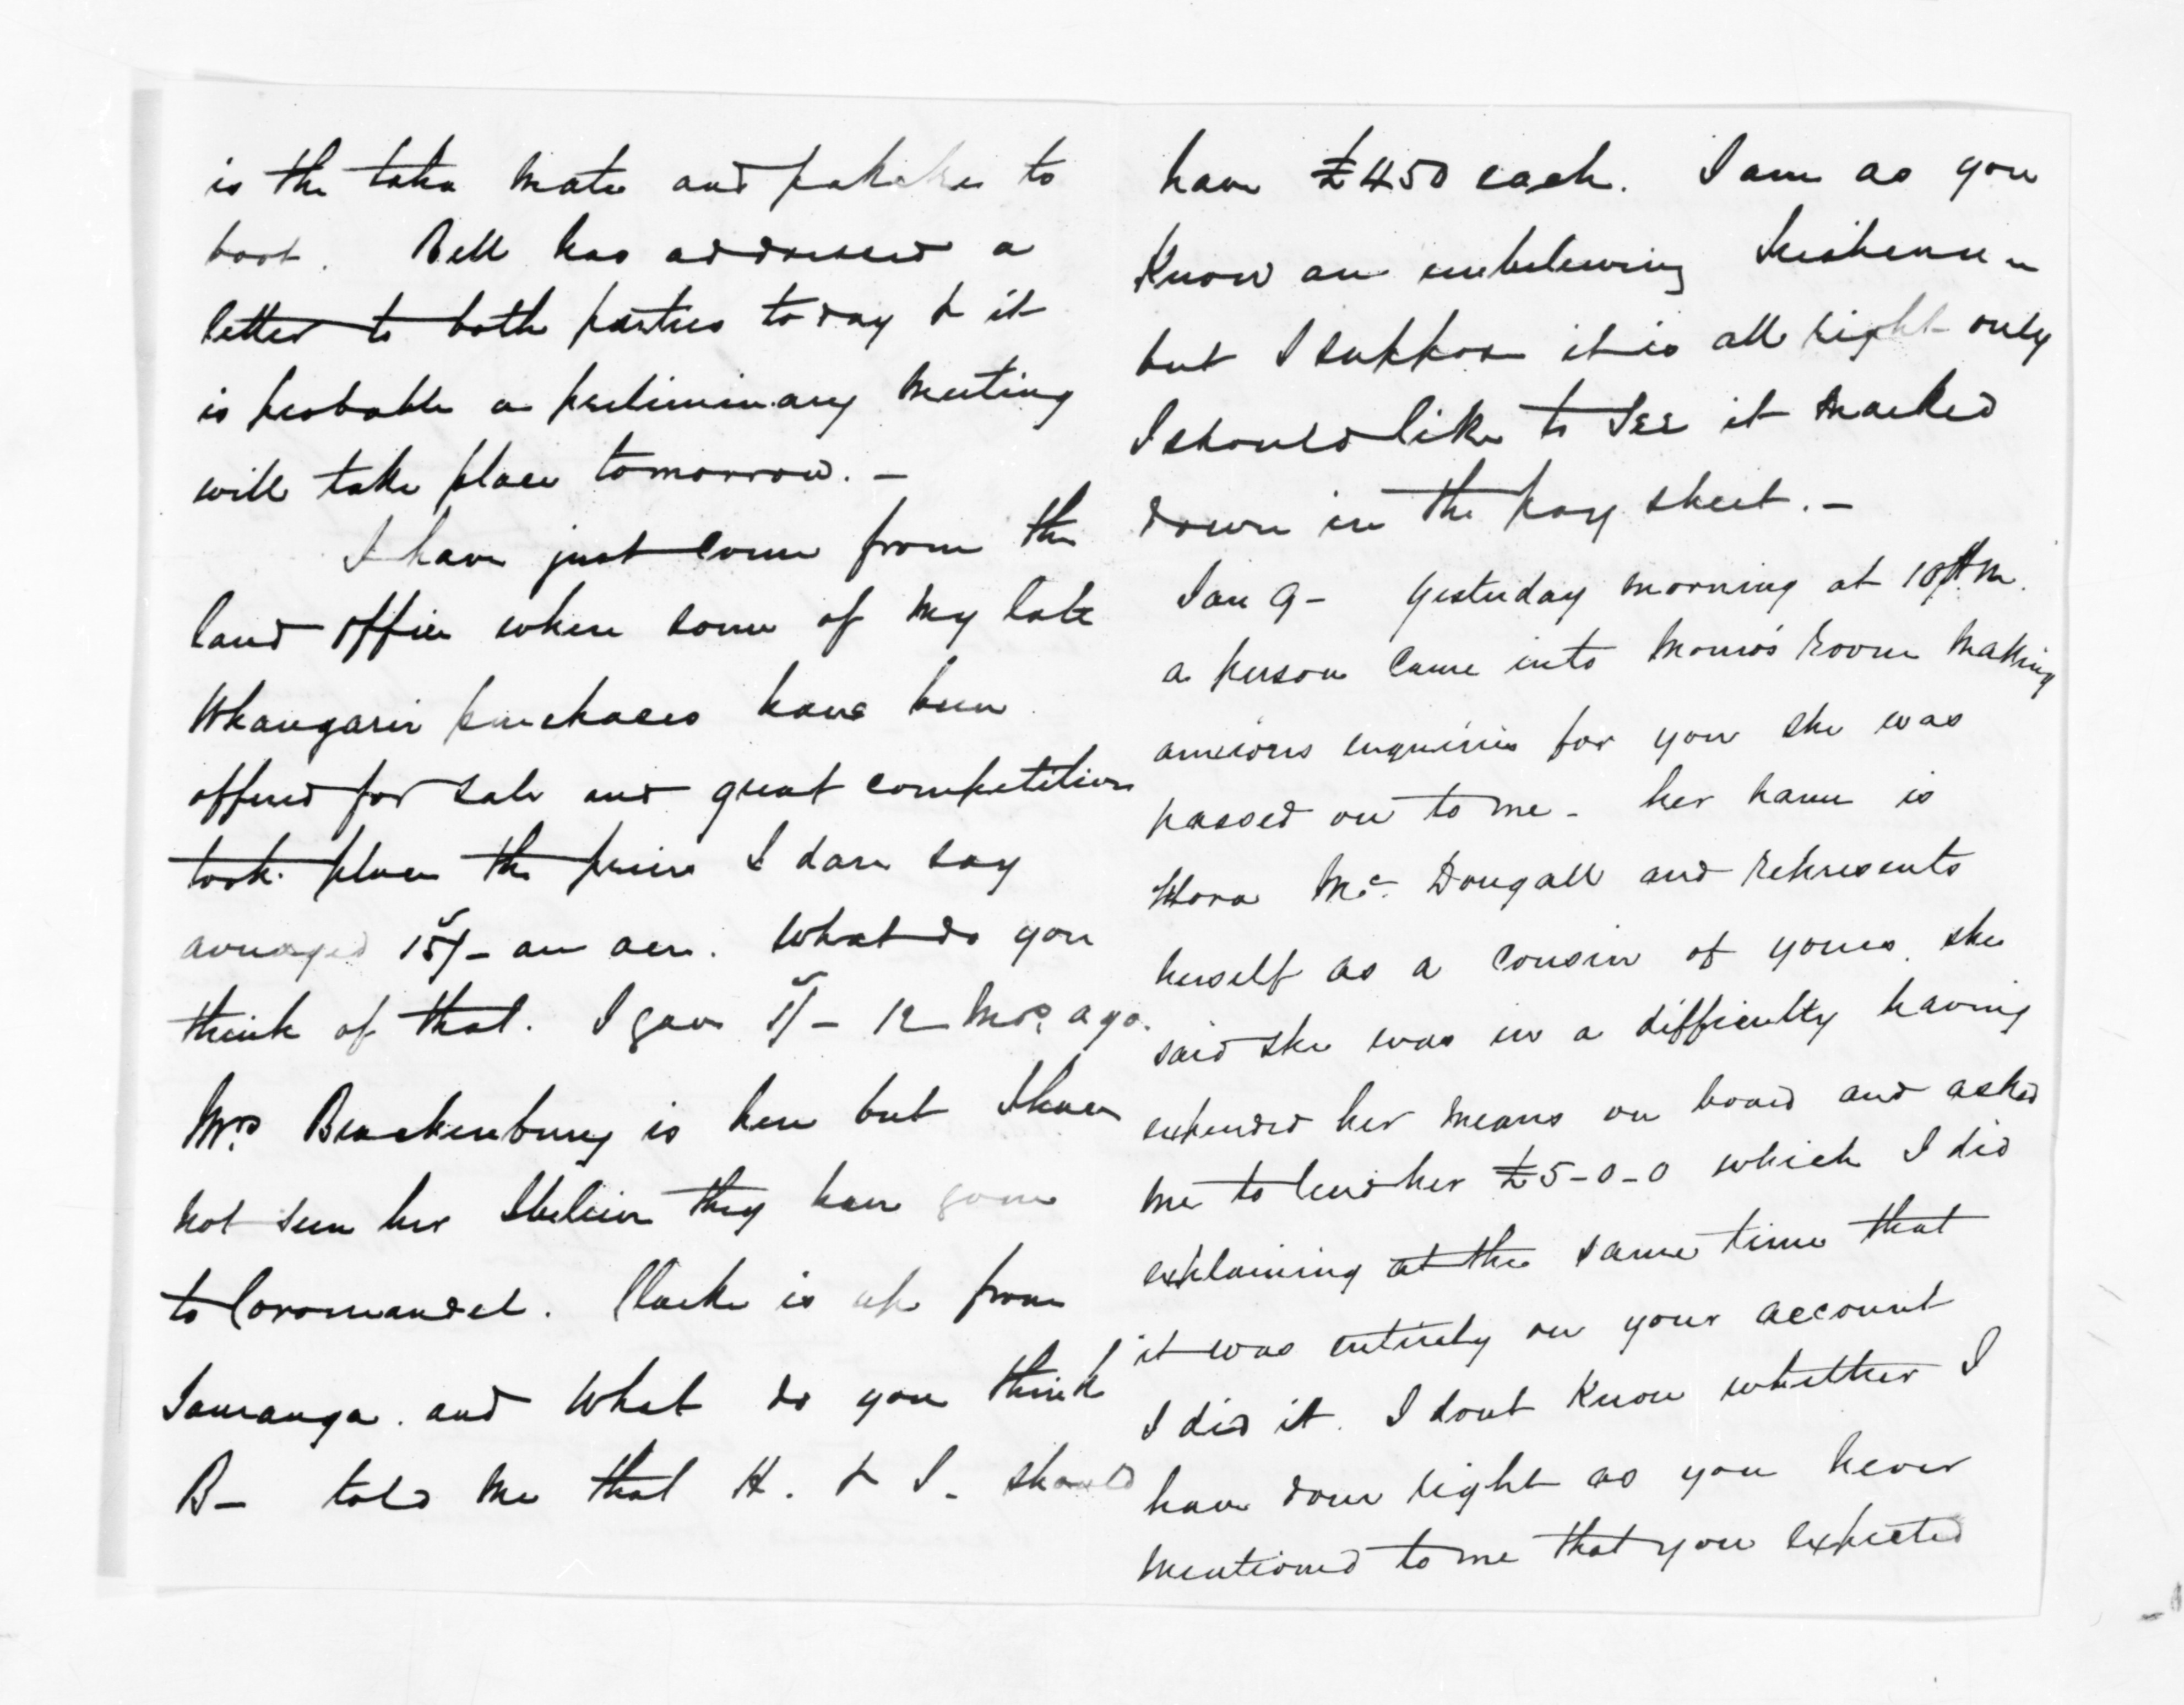 is the take mate and pakehas to
boot. Bell has addressed a
letter to both parties today & it
is probable a preliminary meeting
will take place tomorrow. —
I have just come from the
land office where some of my late
Whangarei purchases have been
offered for sale and great competition
took place the price I dare say
averaged 15/- an acre. What do you
think of that. I gave 1/- 12 mos. ago.
Mrs Brackenbury is here but I have
not seen her I believe they have gone
to Coromandel. Clarke is up from
Tauranga. and what do you think
B— told me that H. & S. should
have £450 each. I am as you
know an unbelieving
but I suppose it is all right only
I should like to see it marked
down in the pay sheet. —
Jan 9 — Yesterday morning at 10 A.M.
a person came into Morris's room making
anxious enquiries for you she was
passed on to me — her name is
Flora Mc. Dougall and represents
herself as a cousin of yours. she
said she was in a difficulty having
expended her means on board and asked
me to lend her £5-0-0 which I did
explaining at the same time that
it was entirely on your account
I did it. I dont know whether I
have done right as you never
mentioned to me that you expected